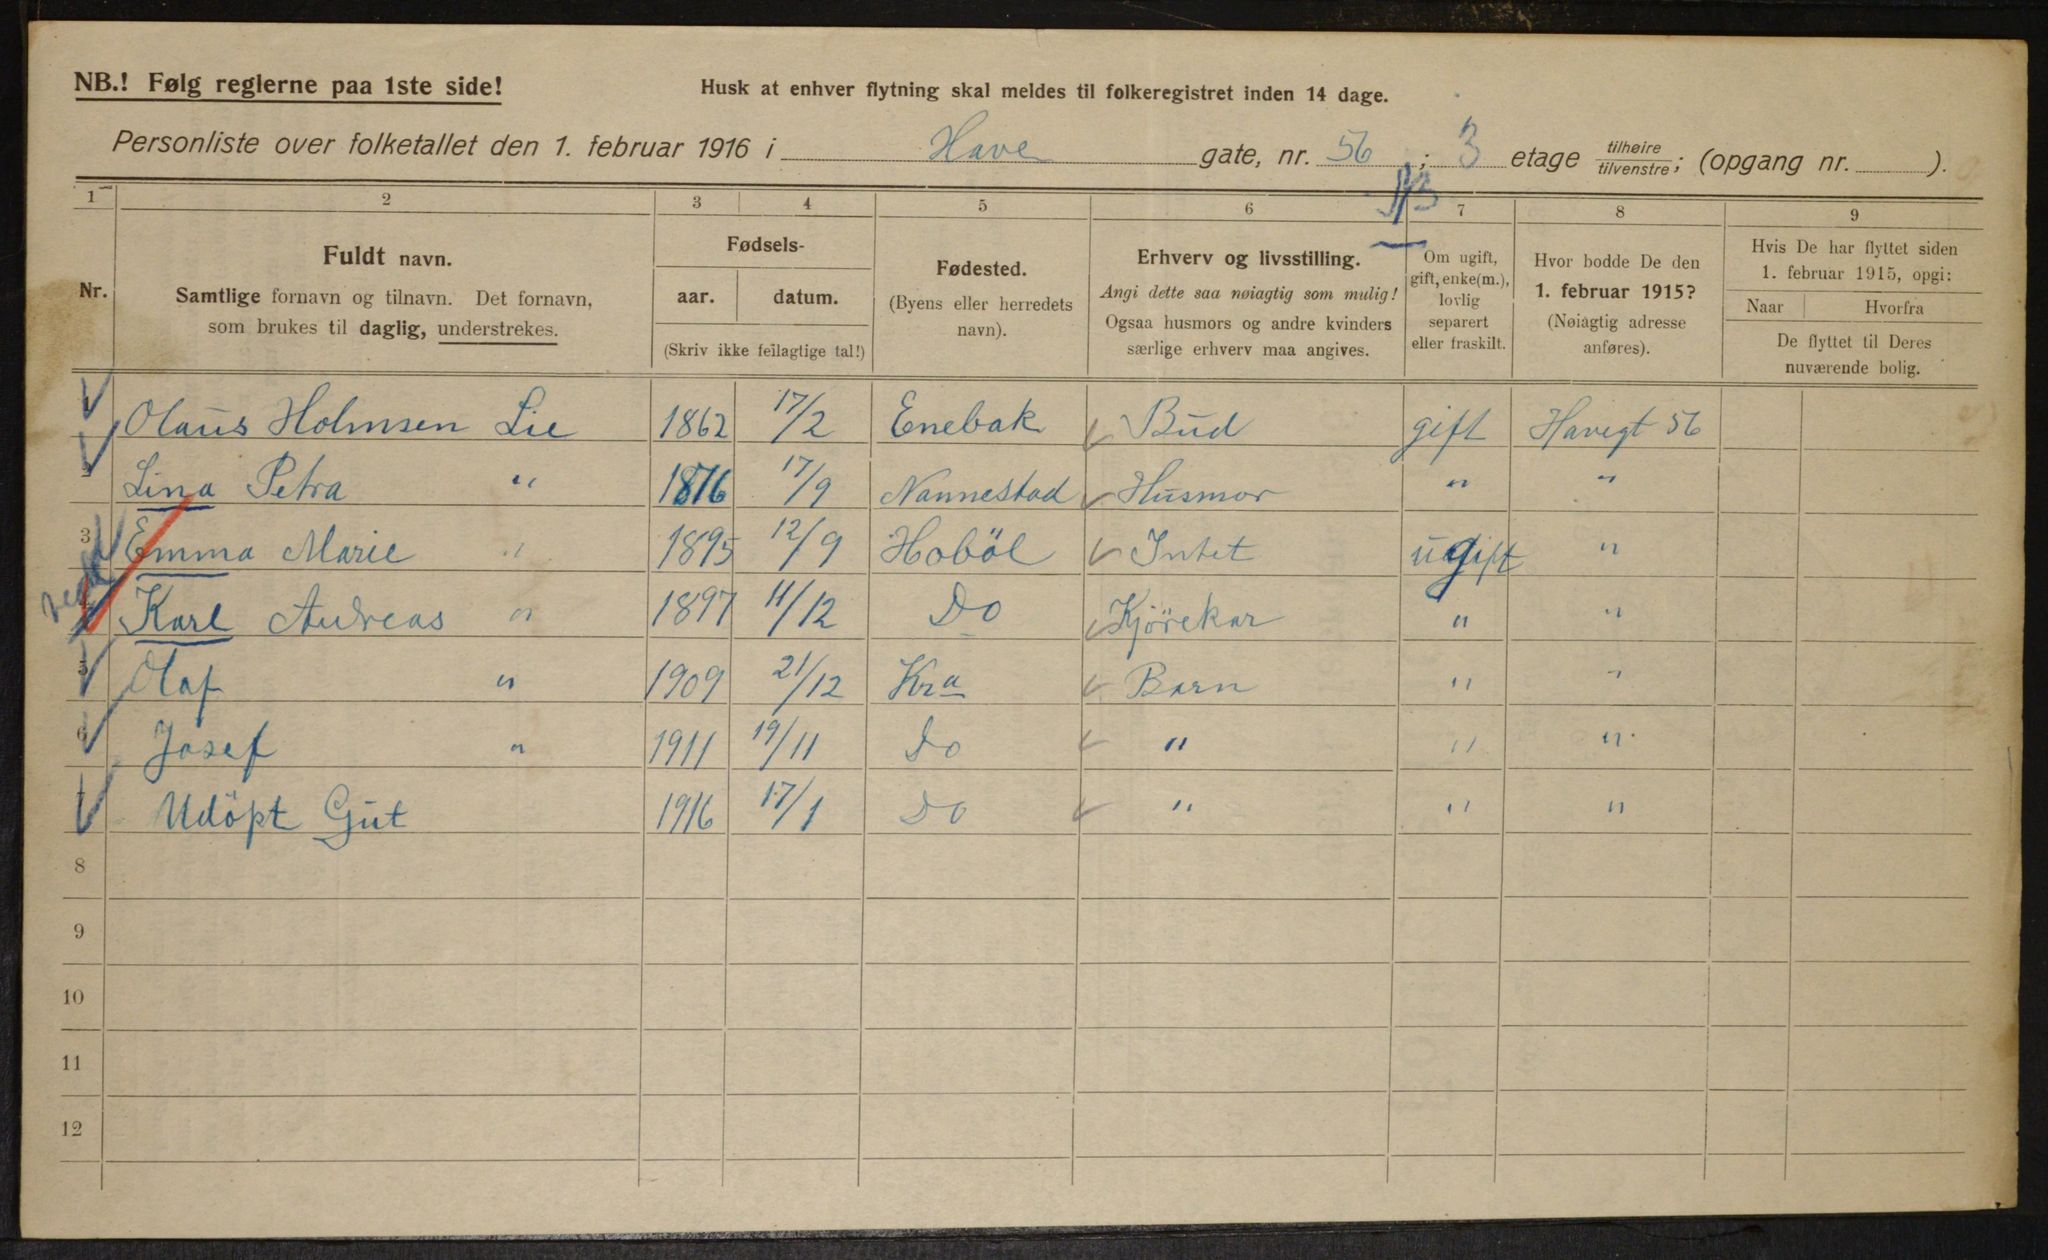 NB.! Følg reglerne paa 1ste side!
Husk at enhver flytning skal meldes til folkeregistret inden 14 dage.
Personliste over folketallet den 1. februar 1916 i Have gate, nr. 56; 3 etage tilhøire/tilvenstre; (opgang nr. ).
1 2 3 4 5 6 7 8 9
Nr.
Fuldt navn.
Samtlige fornavn og tilnavn. Det fornavn,
som brukes til daglig, understrekes.
Fødsels-
aar. datum.
(Skriv ikke feilagtige tal!)
Fødested.
(Byens eller herredets
navn).
Erhverv og livsstilling.
Angi dette saa nøiagtig som mulig!
Ogsaa husmors og andre kvinders
særlige erhverv maa angives.
Om ugift,
gift, enke(m.),
lovlig
separert
eller fraskilt.
Hvor bodde De den
1. februar 1915?
(Nøiagtig adresse
anføres).
Hvis De har flyttet siden
1. februar 1915, opgi:
Naar Hvorfra
De flyttet til Deres
nuværende bolig.
1 Olaus Holmsen Lie 1862 17/2 Enebak Bud gift Havegt 56
2 Lina Petra " 1876 17/9 Nannestad Husmor " "
3 Emma Marie " 1895 12/9 Hoböl Intet ugift "
4 Karl Andreas " 1897 11/12 Do Kjörekar " "
5 Olaf " 1909 21/12 Kra Barn " "
6 Josef " 1911 19/11 Do " " "
7 Udöpt Gut 1916 17/1 Do " " "
8
9
10
11
12